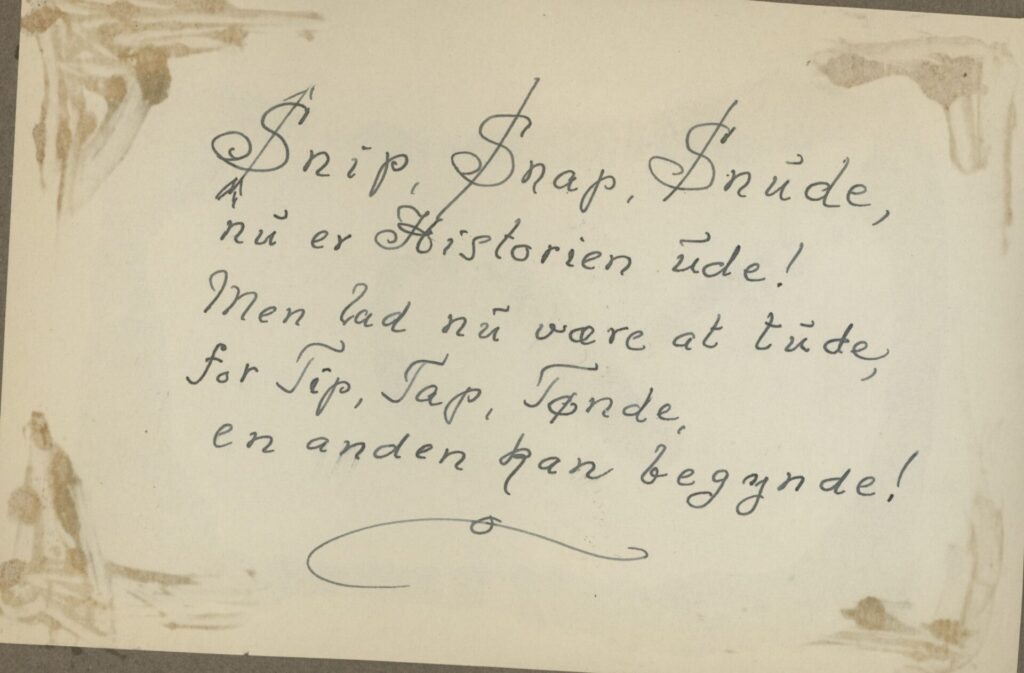 Snip, Snap, Snude,
nu er Historien ude!
Men lad nu være at tude,
for Tip, Tap, Tønde,
en anden kan begynde!